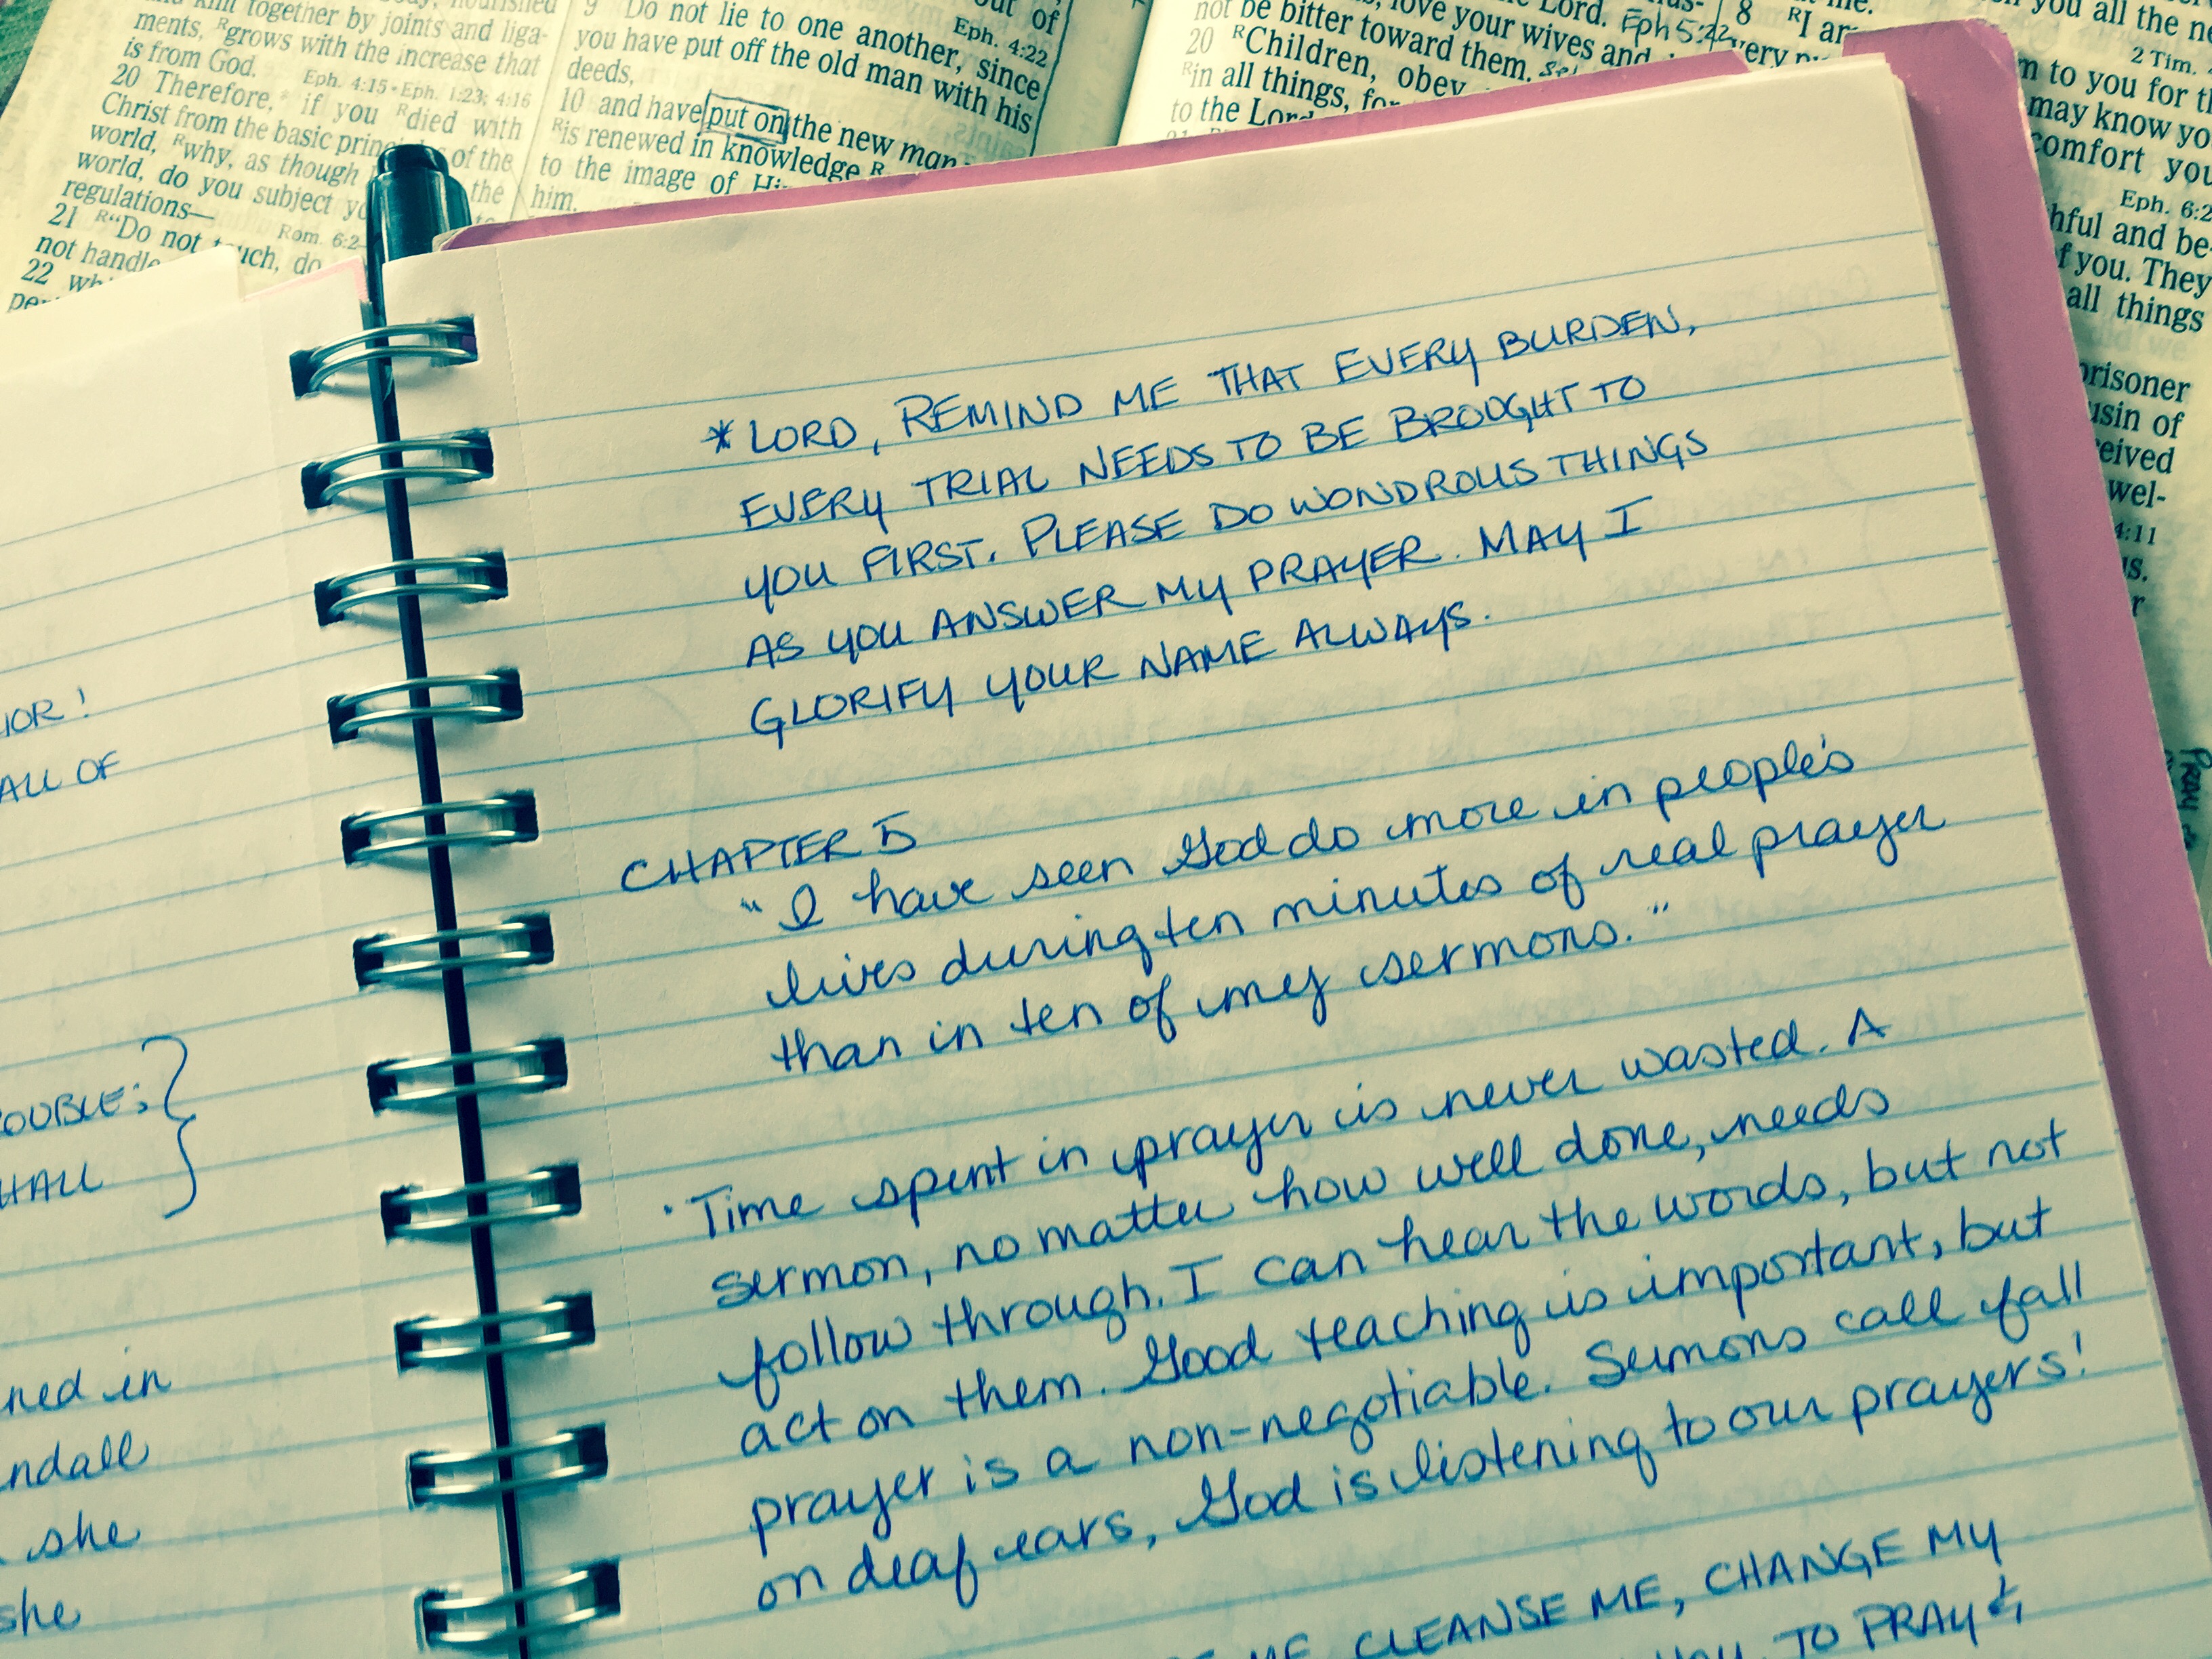 knit together by joints and liga-
ments, ᴿgrows with the increase that
is from God. Eph. 4:15 • Eph. 1:23; 4:16
20 Therefore, if you ᴿdied with
Christ from the basic of the
world, ᴿwhy, as though the
world, do you subject
regulations— Rom. 6:2
21 ᴿ"Do not do
not handle
22
out of
Eph. 4:22
9 Do not lie to one another, since
you have put off the old man with his
deeds,
10 and have put on the new man
ᴿis renewed in knowledge ᴿ
to the image of
him.
Lord. Eph 5:22
love your wives and
not be bitter toward them.
20 ᴿChildren, obey
ᴿin all things, for
to the Lord
8 ᴿI
very
you all the
2 Tim.
to you for
may know
comfort you
Eph. 6:2
and be-
of you. They
all things
prisoner
of
wel-
4:11
ALL OF
she
she
*LORD, REMIND ME THAT EVERY BURDEN,
EVERY TRIAL NEEDS TO BE BROUGHT TO
YOU FIRST. PLEASE DO WONDROUS THINGS
AS YOU ANSWER MY PRAYER. MAY I
GLORIFY YOUR NAME ALWAYS.
CHAPTER 5
"I have seen God do more in people's
lives during ten minutes of real prayer
than in ten of my sermons."
· Time spent in prayer is never wasted. A
sermon, no matter how well done, needs
follow through. I can hear the words, but not
act on them. Good teaching is important, but
prayer is a non-negotiable. Sermons call fall
on deaf ears, God is listening to our prayers!
ME, CLEANSE ME, CHANGE MY
TO PRAY &